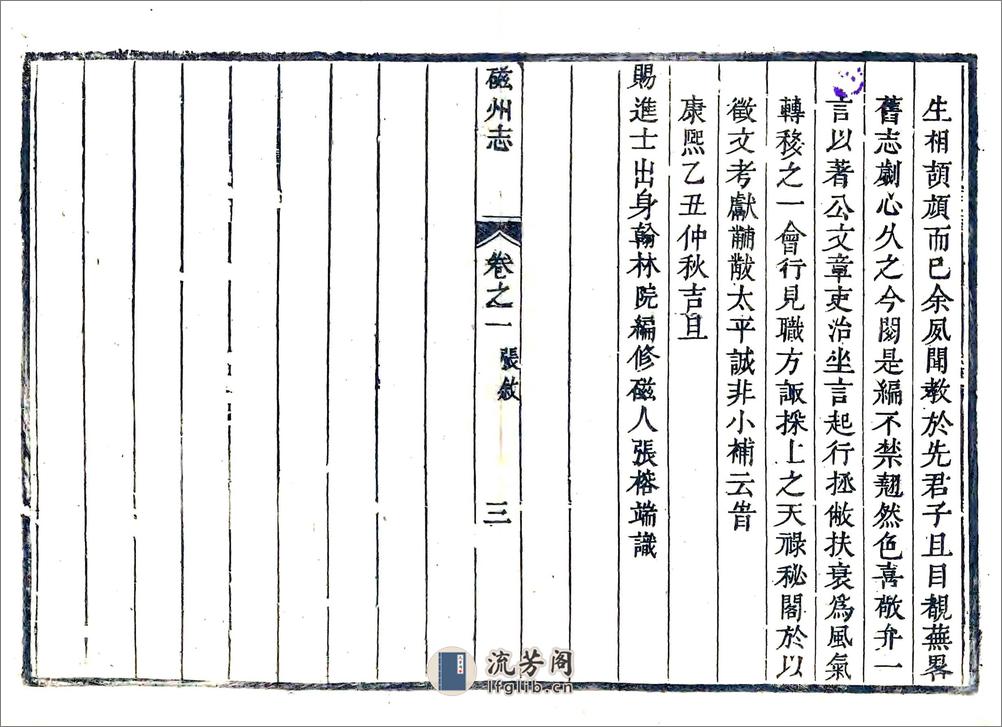 生相頡頏而已余夙聞教於先君子且目覩蕪畧
舊志劌心久之今閱是編不禁翹然色喜敬弁一
言以著公文章吏治坐言起行拯敝扶衰爲風氣
轉移之一會行見職方諏採上之天祿秘閣於以
徵文考獻黼黻太平誠非小補云旹
康熙乙丑仲秋吉旦
賜進士出身翰林院編修磁人張榕端識
磁州志
卷之一
張敘
三
流芳阁
lfglib.cn